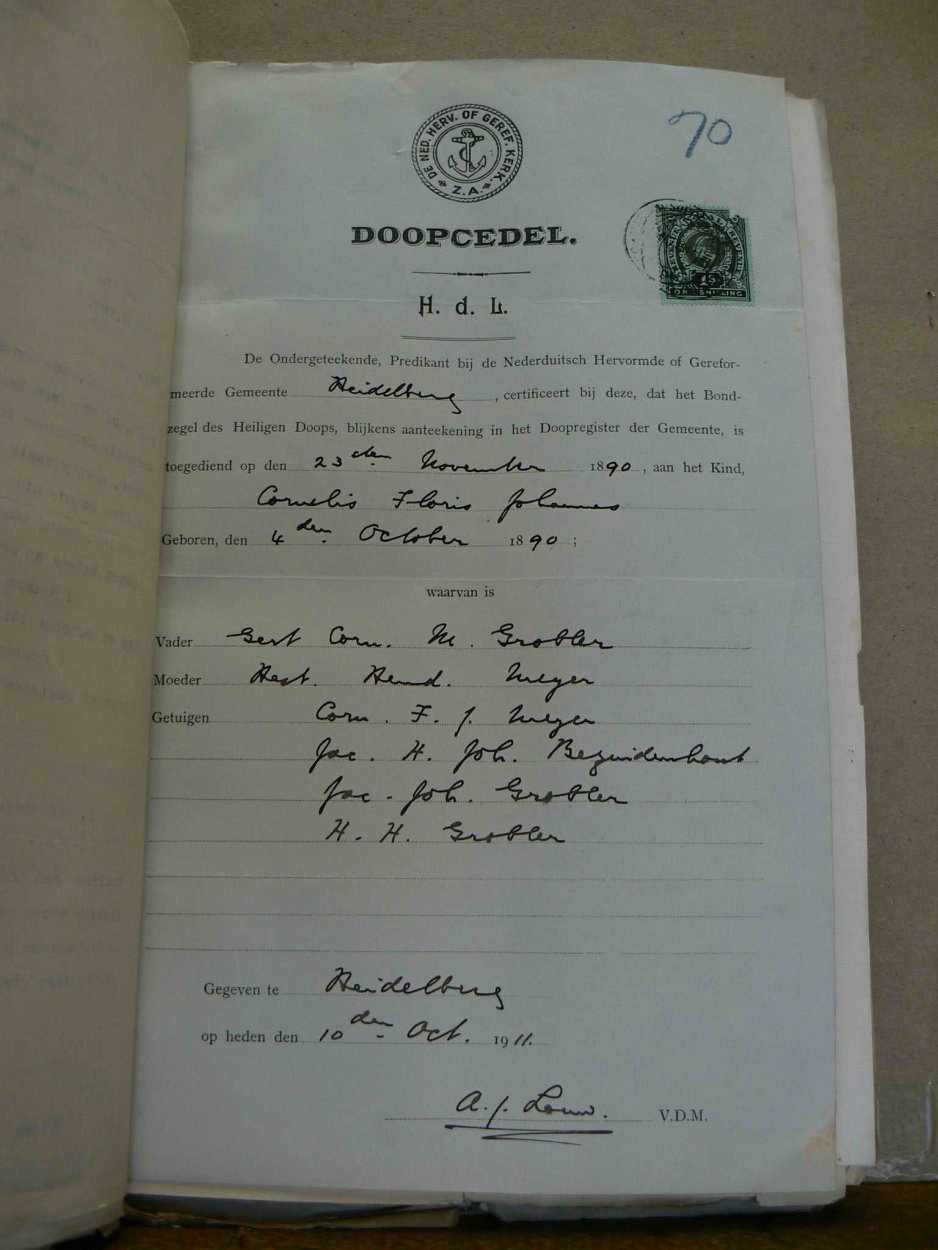 DE NED. HERV. OF GEREF. KERK.
Z.A.
70
DOOPCEDEL.
ONE SHILLING
H. d. L.
De Ondergeteekende, Predikant bij de Nederduitsch Hervormde of Gerefor-
meerde Gemeente Heidelberg, certificeert bij deze, dat het Bond-
zegel des Heiligen Doops, blijkens aanteekening in het Doopregister der Gemeente, is
toegediend op den 23sten November 1890, aan het Kind,
Cornelis Floris Johannes
Geboren, den 4den October 1890;
waarvan is
Vader Gert Corn. M. Grobler
Moeder Hest. Hend. Meyer
Getuigen Corn. F. J. Meyer
Jac. H. Joh. Bezuidenhout
Jac. Joh. Grobler
H. H. Grobler
Gegeven te Heidelberg
op heden den 10den Oct. 1911.
A. J. Louw. V.D.M.